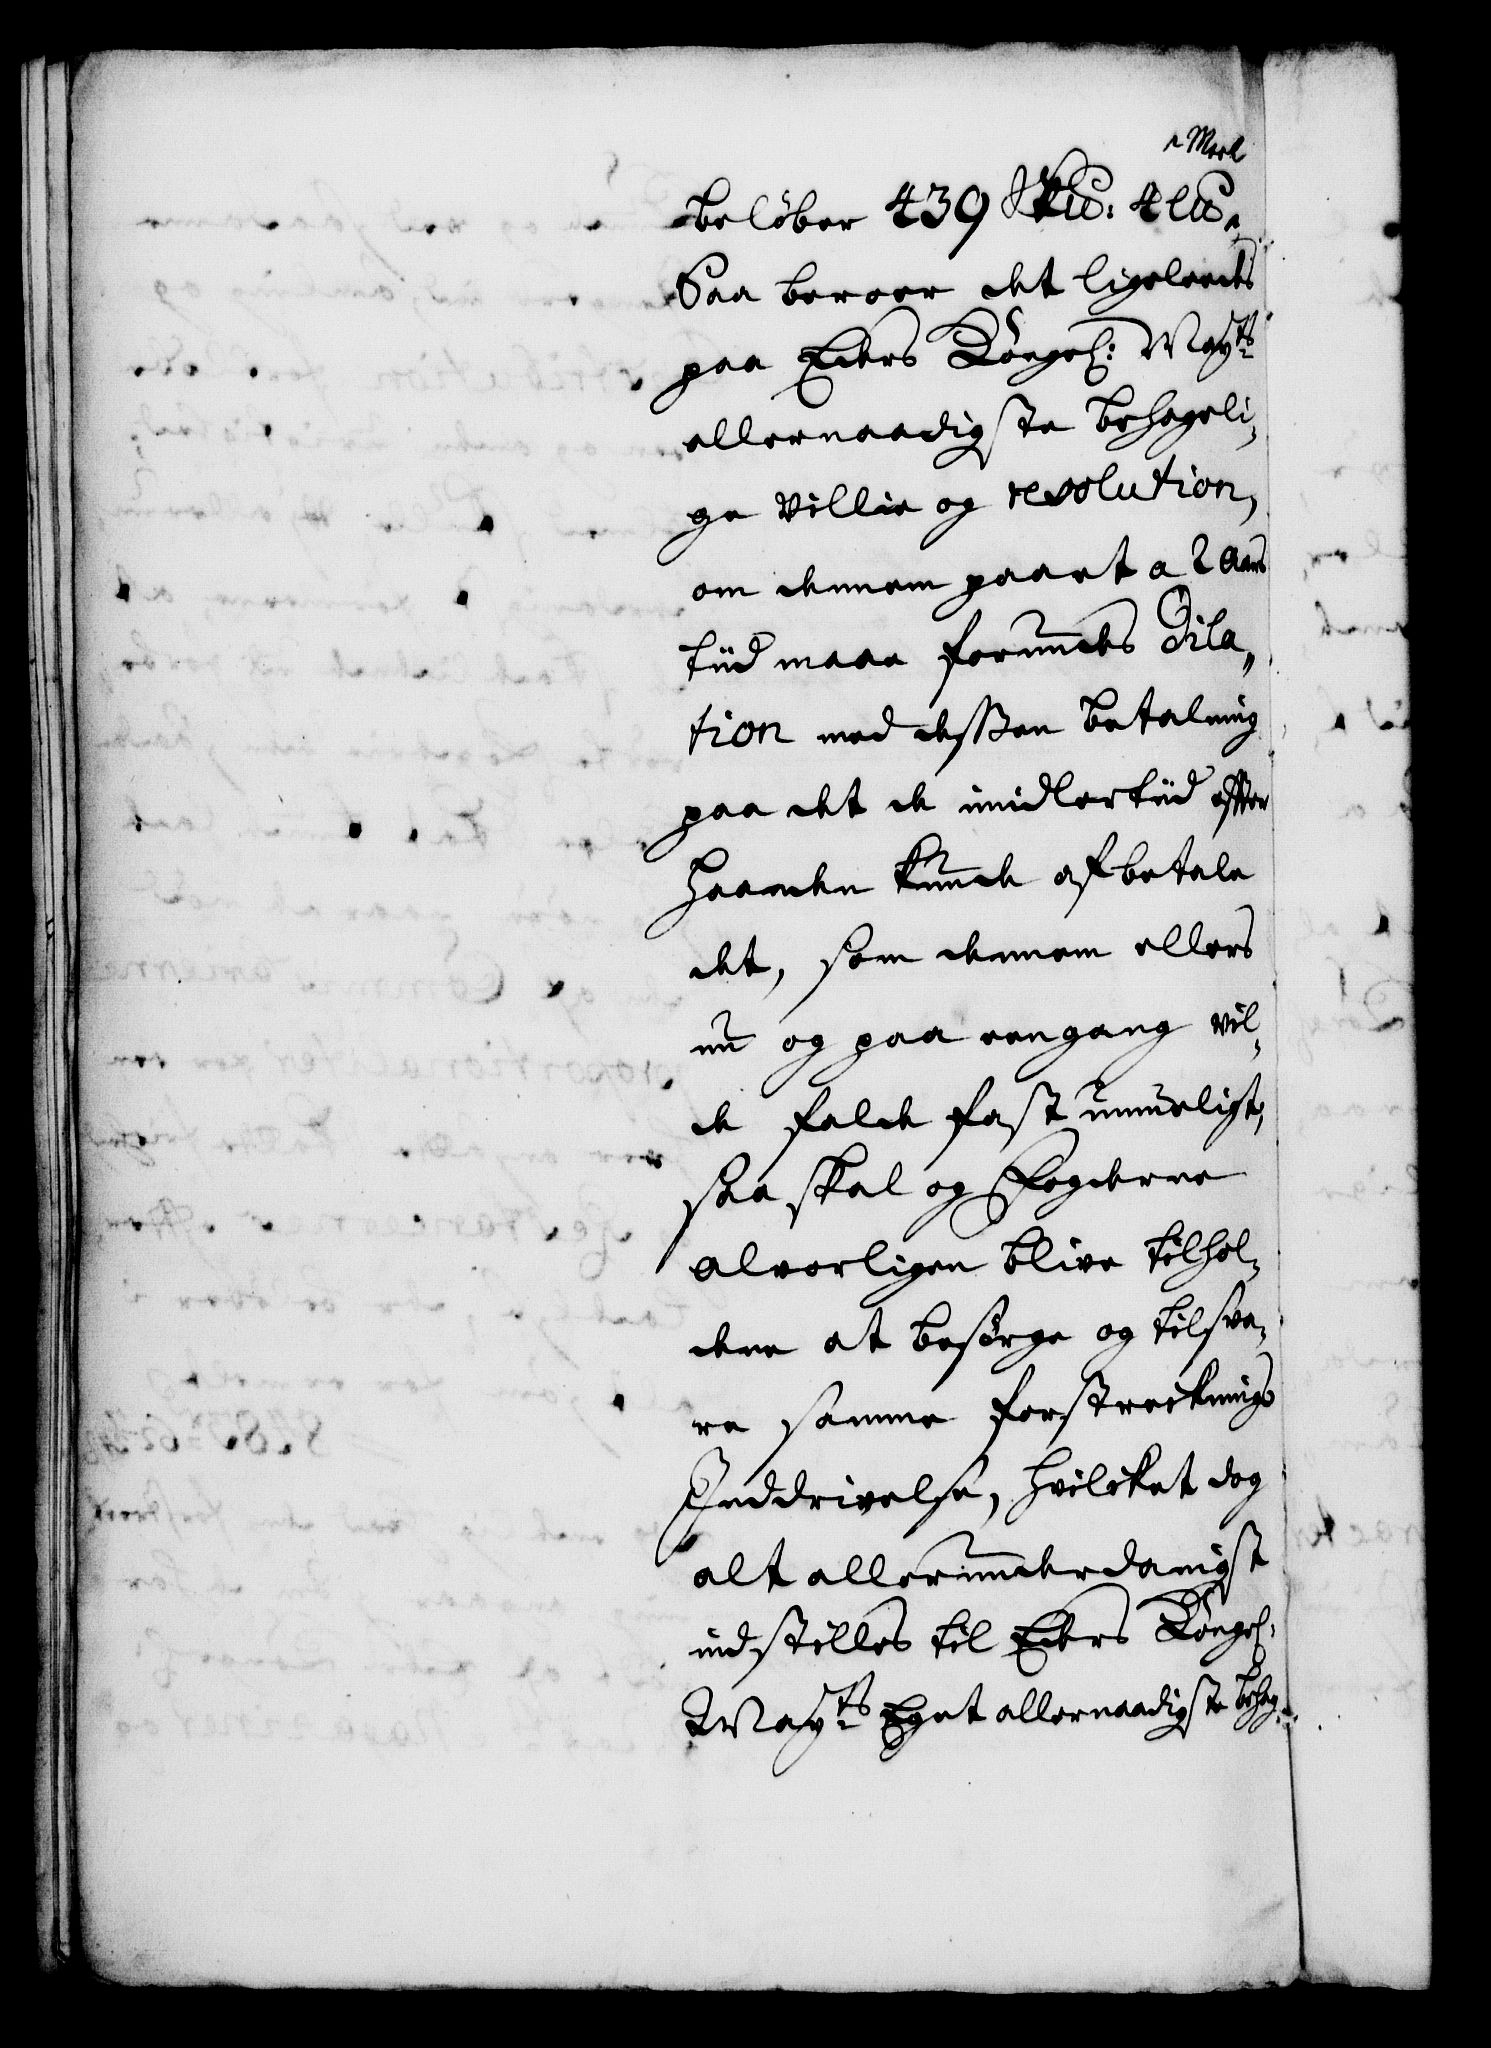 Meel
beløber 439 Skt: 4 Lt
Saa beroer det ligeleedis
paa Eders Kongel: Mayts
allernaadigste behageli¬
ge Villie og resolution,
om dennem paa et a 2 Aars
tiid maae forundes Dila„
tion med dessen betalning
paa det de imidlertiid efter
Haanden kunde afbetale
det, som dennem ellers
nu og paa eengang vil¬
de falde fast umueligt,
saa skal og Fogderne
alvorligen blive tilhol¬
dene at besørge og tilsva¬
re samme forstrecknings
Inddrivelse, hvilcket dog
alt allerunderdanigst
indstilles til Eders Kongel:
Mayts Eget allernaadigste behag¬